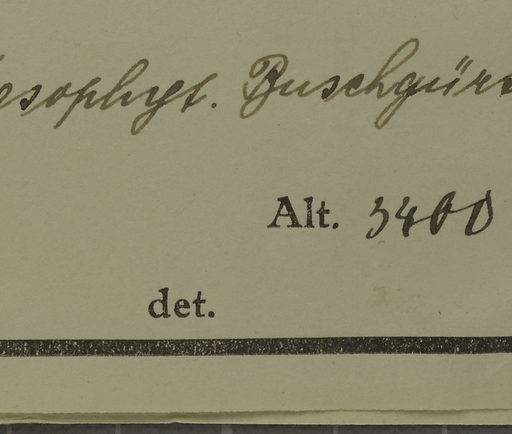 esophyt. Buschgür
Alt. 3400
det.